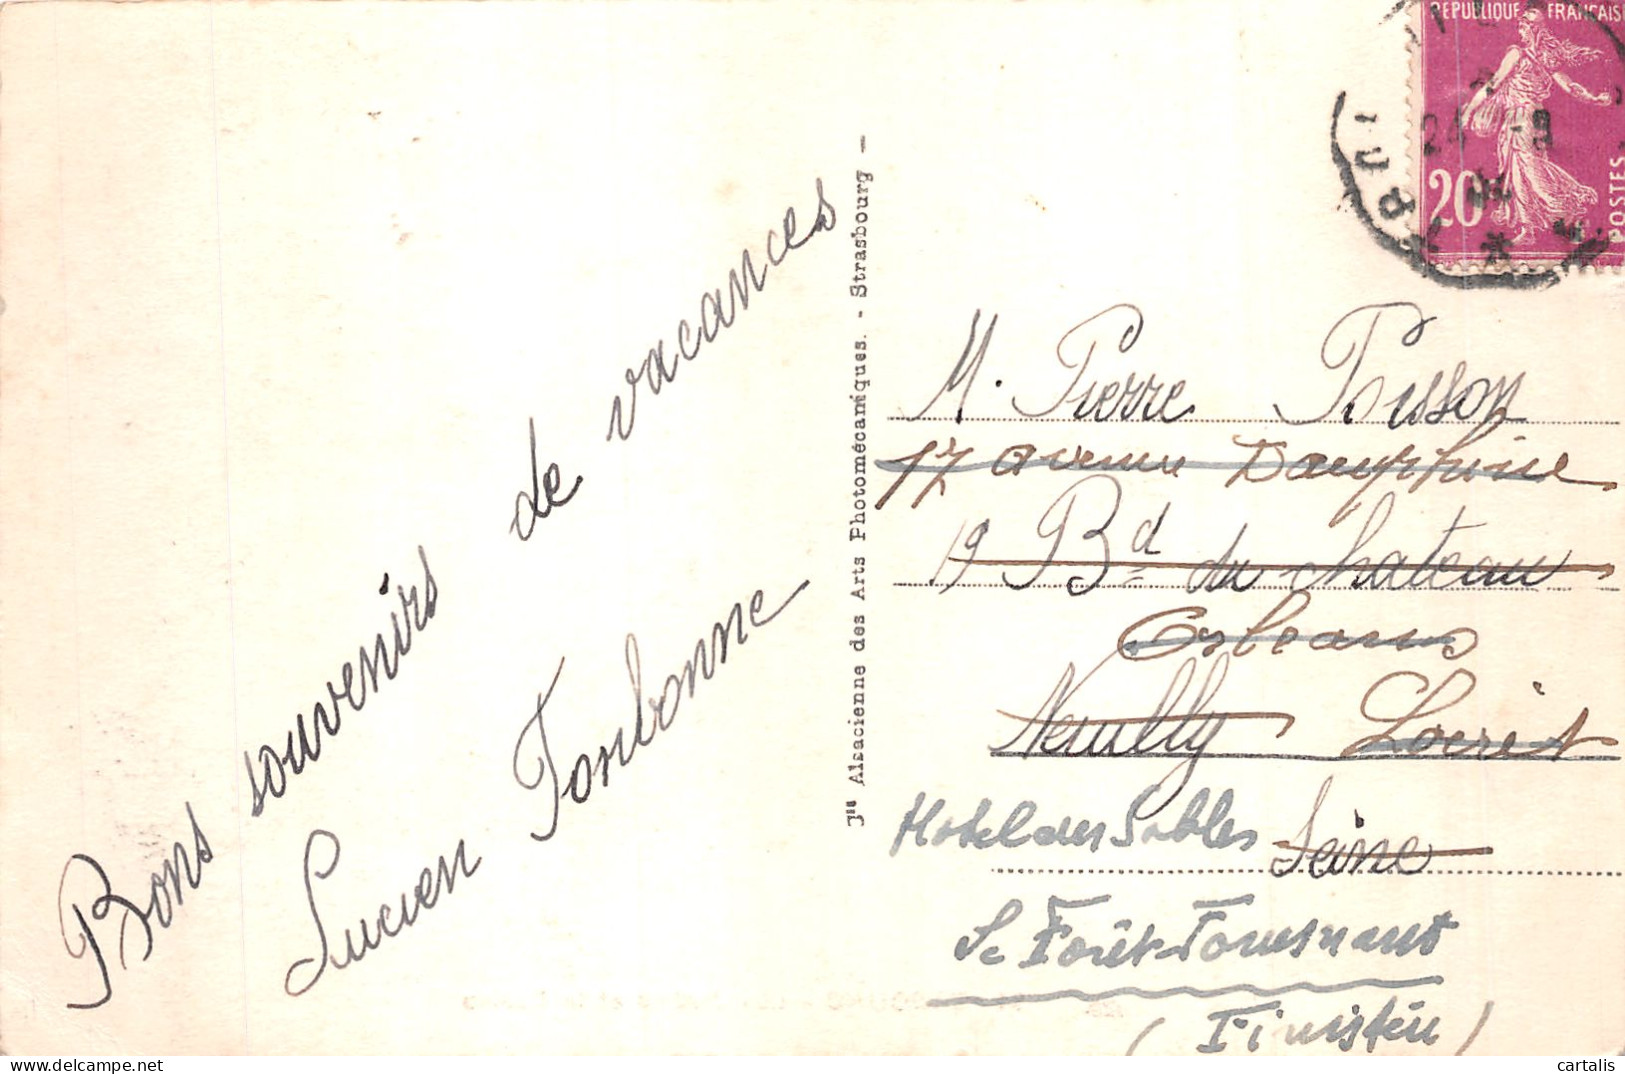 Bons souvenirs de vacances
Lucien Fonbonne
Jse Alsacienne des Arts Photomécaniques. - Strasbourg -
REPUBLIQUE FRANÇAISE
24 -9
20c
POSTES
M. Pierre
17 avenue Dauphine
19 Bd du chateau
Orleans
Neuilly Loiret
Hotel des Sables Seine
Fouesnant
(Finistère)
cartalis